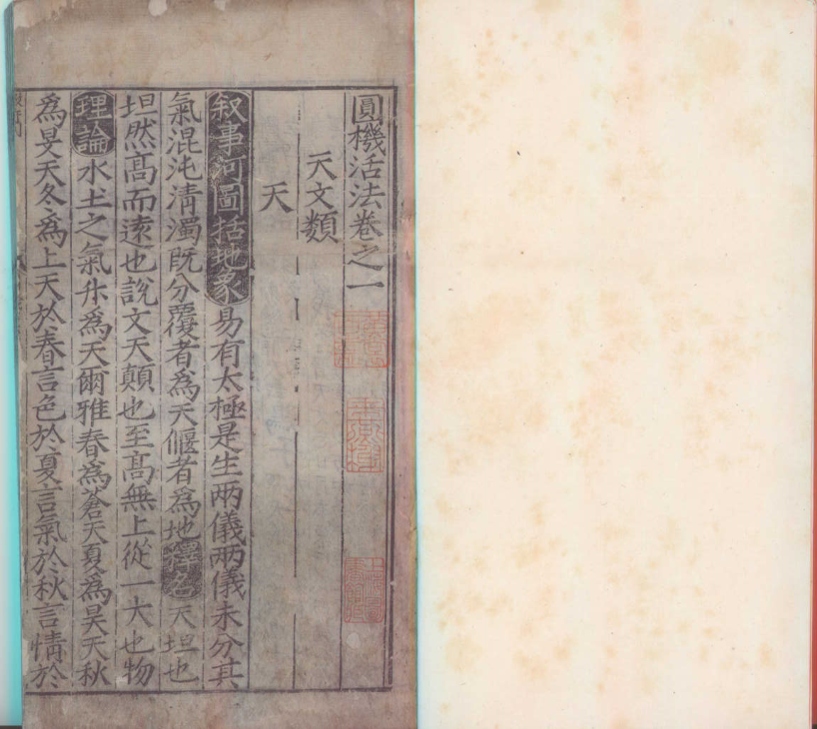 圓機活法卷之一
天文類
天
叙事河圖括地象易有太極是生兩儀兩儀未分其
氣混沌淸濁既分覆者為天偃者爲地釋名天坦也
坦然髙而遠也說文天顛也至髙無上從一大也物
理論水土之氣升爲天爾雅春爲蒼天夏爲昊天秋
爲旻天冬爲上天於春言色於夏言氣於秋言情於